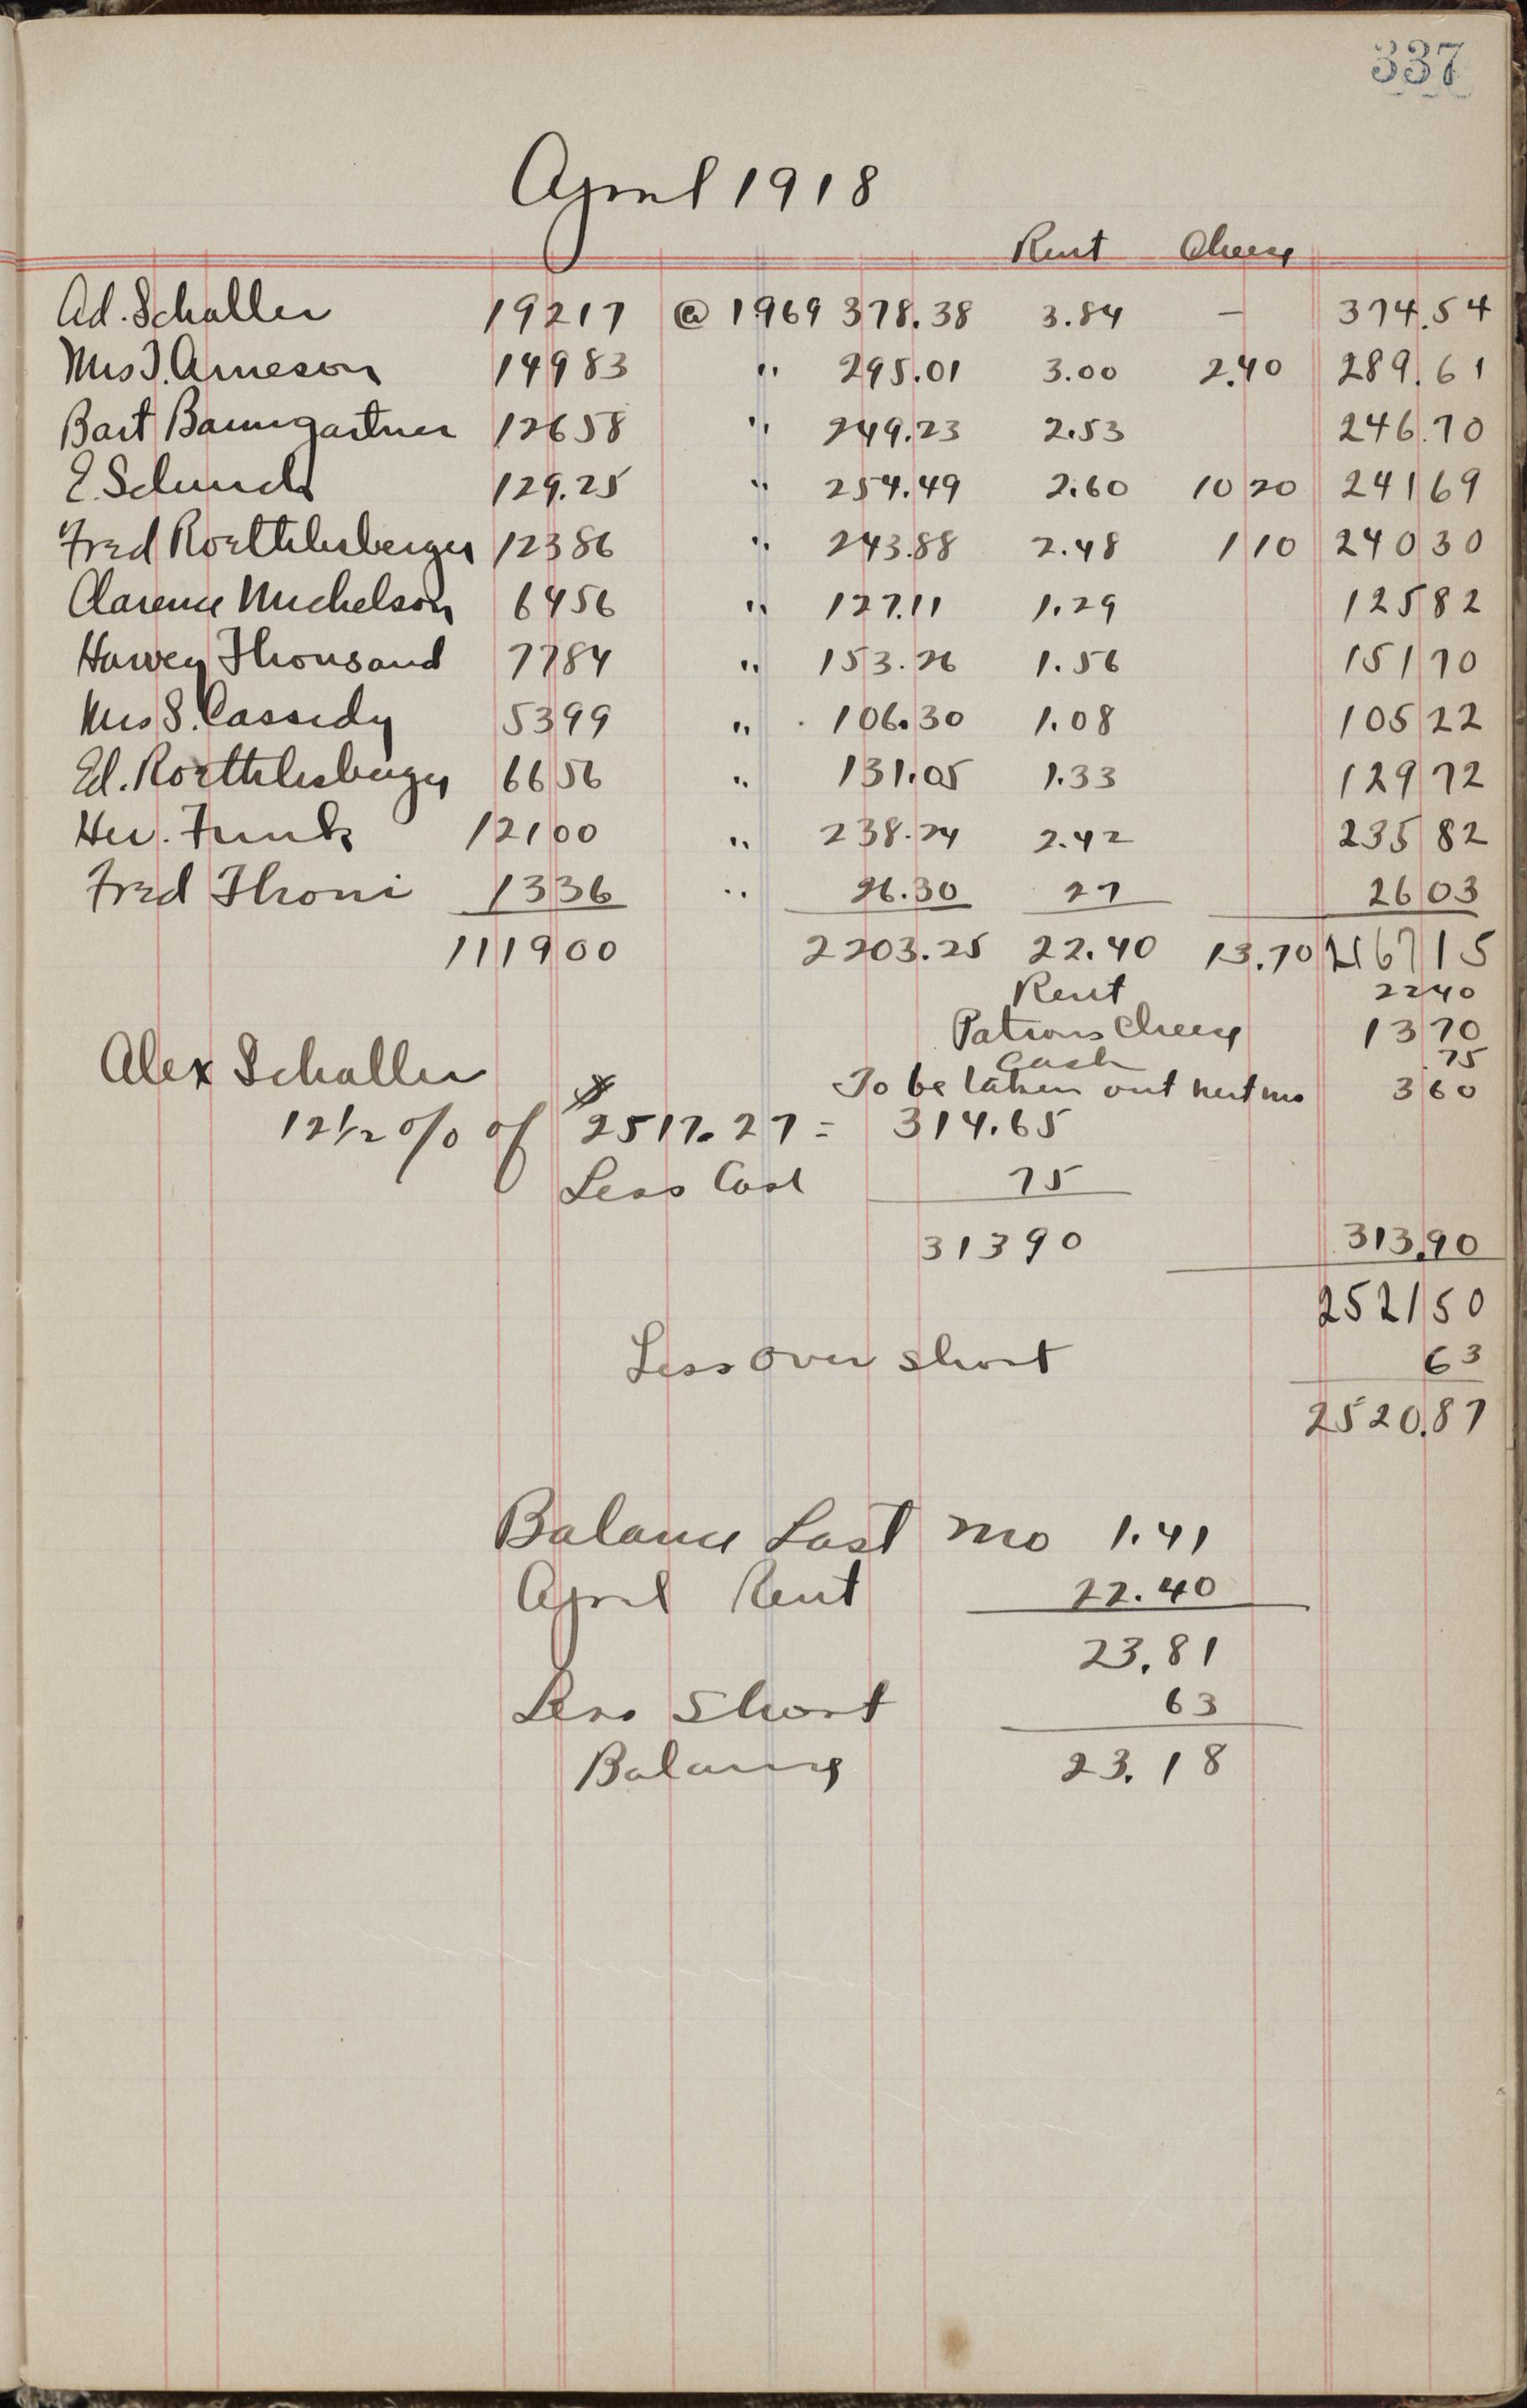 337
April 1918
Rent Cheese
Ad. Schaller 19217 @ 1969 378.38 3.84 — 374.54
Mrs T. Arneson 14983 " 295.01 3.00 2.40 289.61
Bart Baumgartner 12658 " 249.23 2.53 246.70
E. Schunck 129.25 " 254.49 2.60 10 20 241 69
Fred Roethlisberger 12386 " 243.88 2.48 1 10 240 30
Clarence Michelson 6456 " 127.11 1.29 125 82
Harvey Thousand 7784 " 153.26 1.56 151 70
Mrs S. Cassidy 5399 " 106.30 1.08 105 22
Ed. Roethlisberger 6656 " 131.05 1.33 129 72
Her. Funk 12100 " 238.24 2.42 235 82
Fred Thoni 1336 " 26.30 27 26 03
111900 2203.25 22.40 13.70 2167 15
Rent 22 40
Patrons Cheese 13 70
Cash .75
Alex Schaller To be taken out next mo 3 60
12 1/2 % of $ 2517.27 = 314.65
Less Cash 75
313 90 313.90
2521 50
Less over short 63
2520.87
Balance Last mo 1.41
April Rent 22.40
23.81
Less Short 63
Balance 23.18